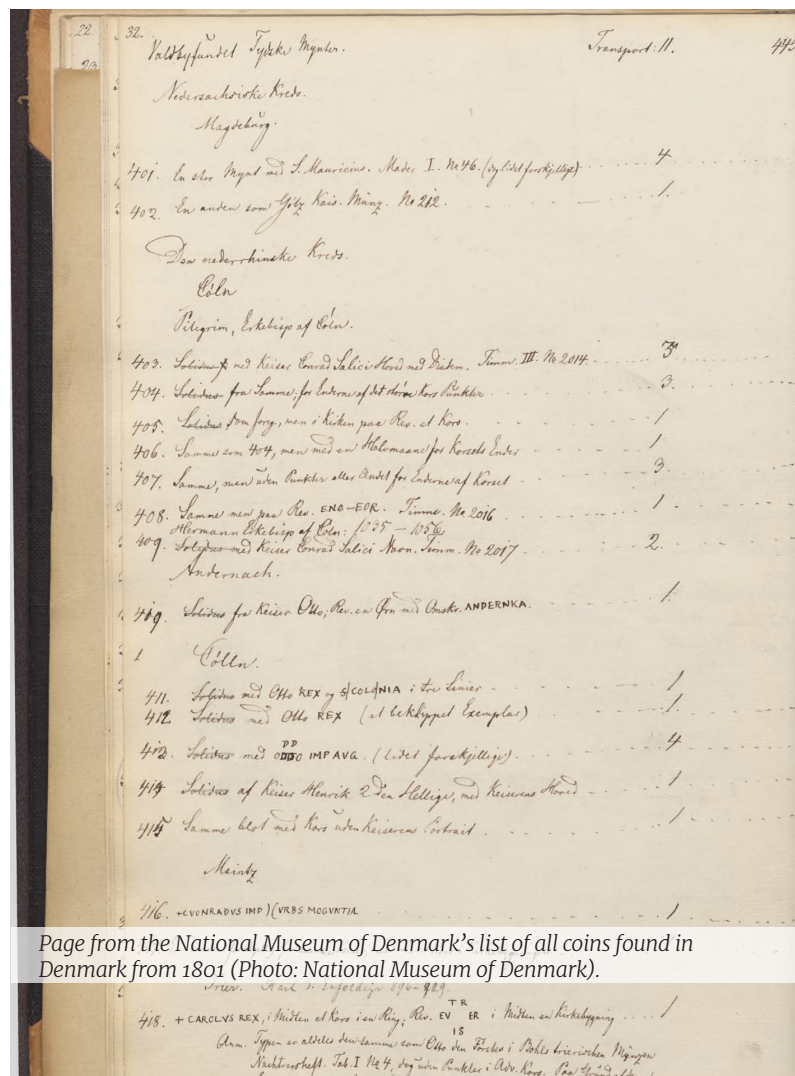 22
32.
Valdbyfundet Tydske Mynter.
Transport: 11.
Nedersachsiske Kreds.
Magdeburg.
401. En stor Mynt med S. Mauricius. Mader I. No 46. (dog lidet forskjellige) 4
402. En anden som Götz Kais. Münz. No 212. 1.
Den nederrhinske Kreds.
Cöln
Piligrim, Erkebisp af Cöln.
403. Solidus med Keiser Conrad Salici Hoved med Diadem. Timm. III. No 2014. 3
404. Solidus fra Samme, for Enderne af det større Kors Punkter 3.
405. Solidus som forrg., men i Kirken paa Rev. et Kors. 1
406. Samme som 404, men med en Halvmaane for Korsets Ender 1
407. Samme, men uden Punkter eller Andet for Enderne af Korset 3.
408. Samme men paa Rev. ENO-EOR. Timm. No 2016 1
Hermann Erkebisp af Cöln: 1035 — 1056.
409. Solidus med Keiser Conrad Salici Navn. Timm. No 2017 2.
Andernach.
Solidus fra Keiser Otto; Rev. en Ørn med Omskr. ANDERNKA. 1.
1
Cölln.
411. Solidus med Otto REX og S|COLO|NIA i tre Linier 1
412 Solidus med Otto REX (et bekkyppet Exemplar) 1.
DD
413. Solidus med IMP AVG. (lidet forskjellige) 4
414 Solidus af Keiser Henrik 2 Den Hellige, med Keiserens Hoved 1
415 Samme blot med Kors uden Keiserens Portrait 1
Maintz
416. +CVONRADVS IMP)(VRBS MOGVNTIA 1
Page from the National Museum of Denmark's list of all coins found in
Denmark from 1801 (Photo: National Museum of Denmark).
Trier. Karl
TR
418. + CAROLVS REX, i Midten et Kors i en Ring; Rev. EV ER i Midten en Kirkebygning 1
IS
Anm. Typen er aldeles den samme som Otto den Førstes i Bohls trierischen Münzen
Nachtragsheft. Tab. I No 4, dog uden Punkter i Adv. Kors. Paa